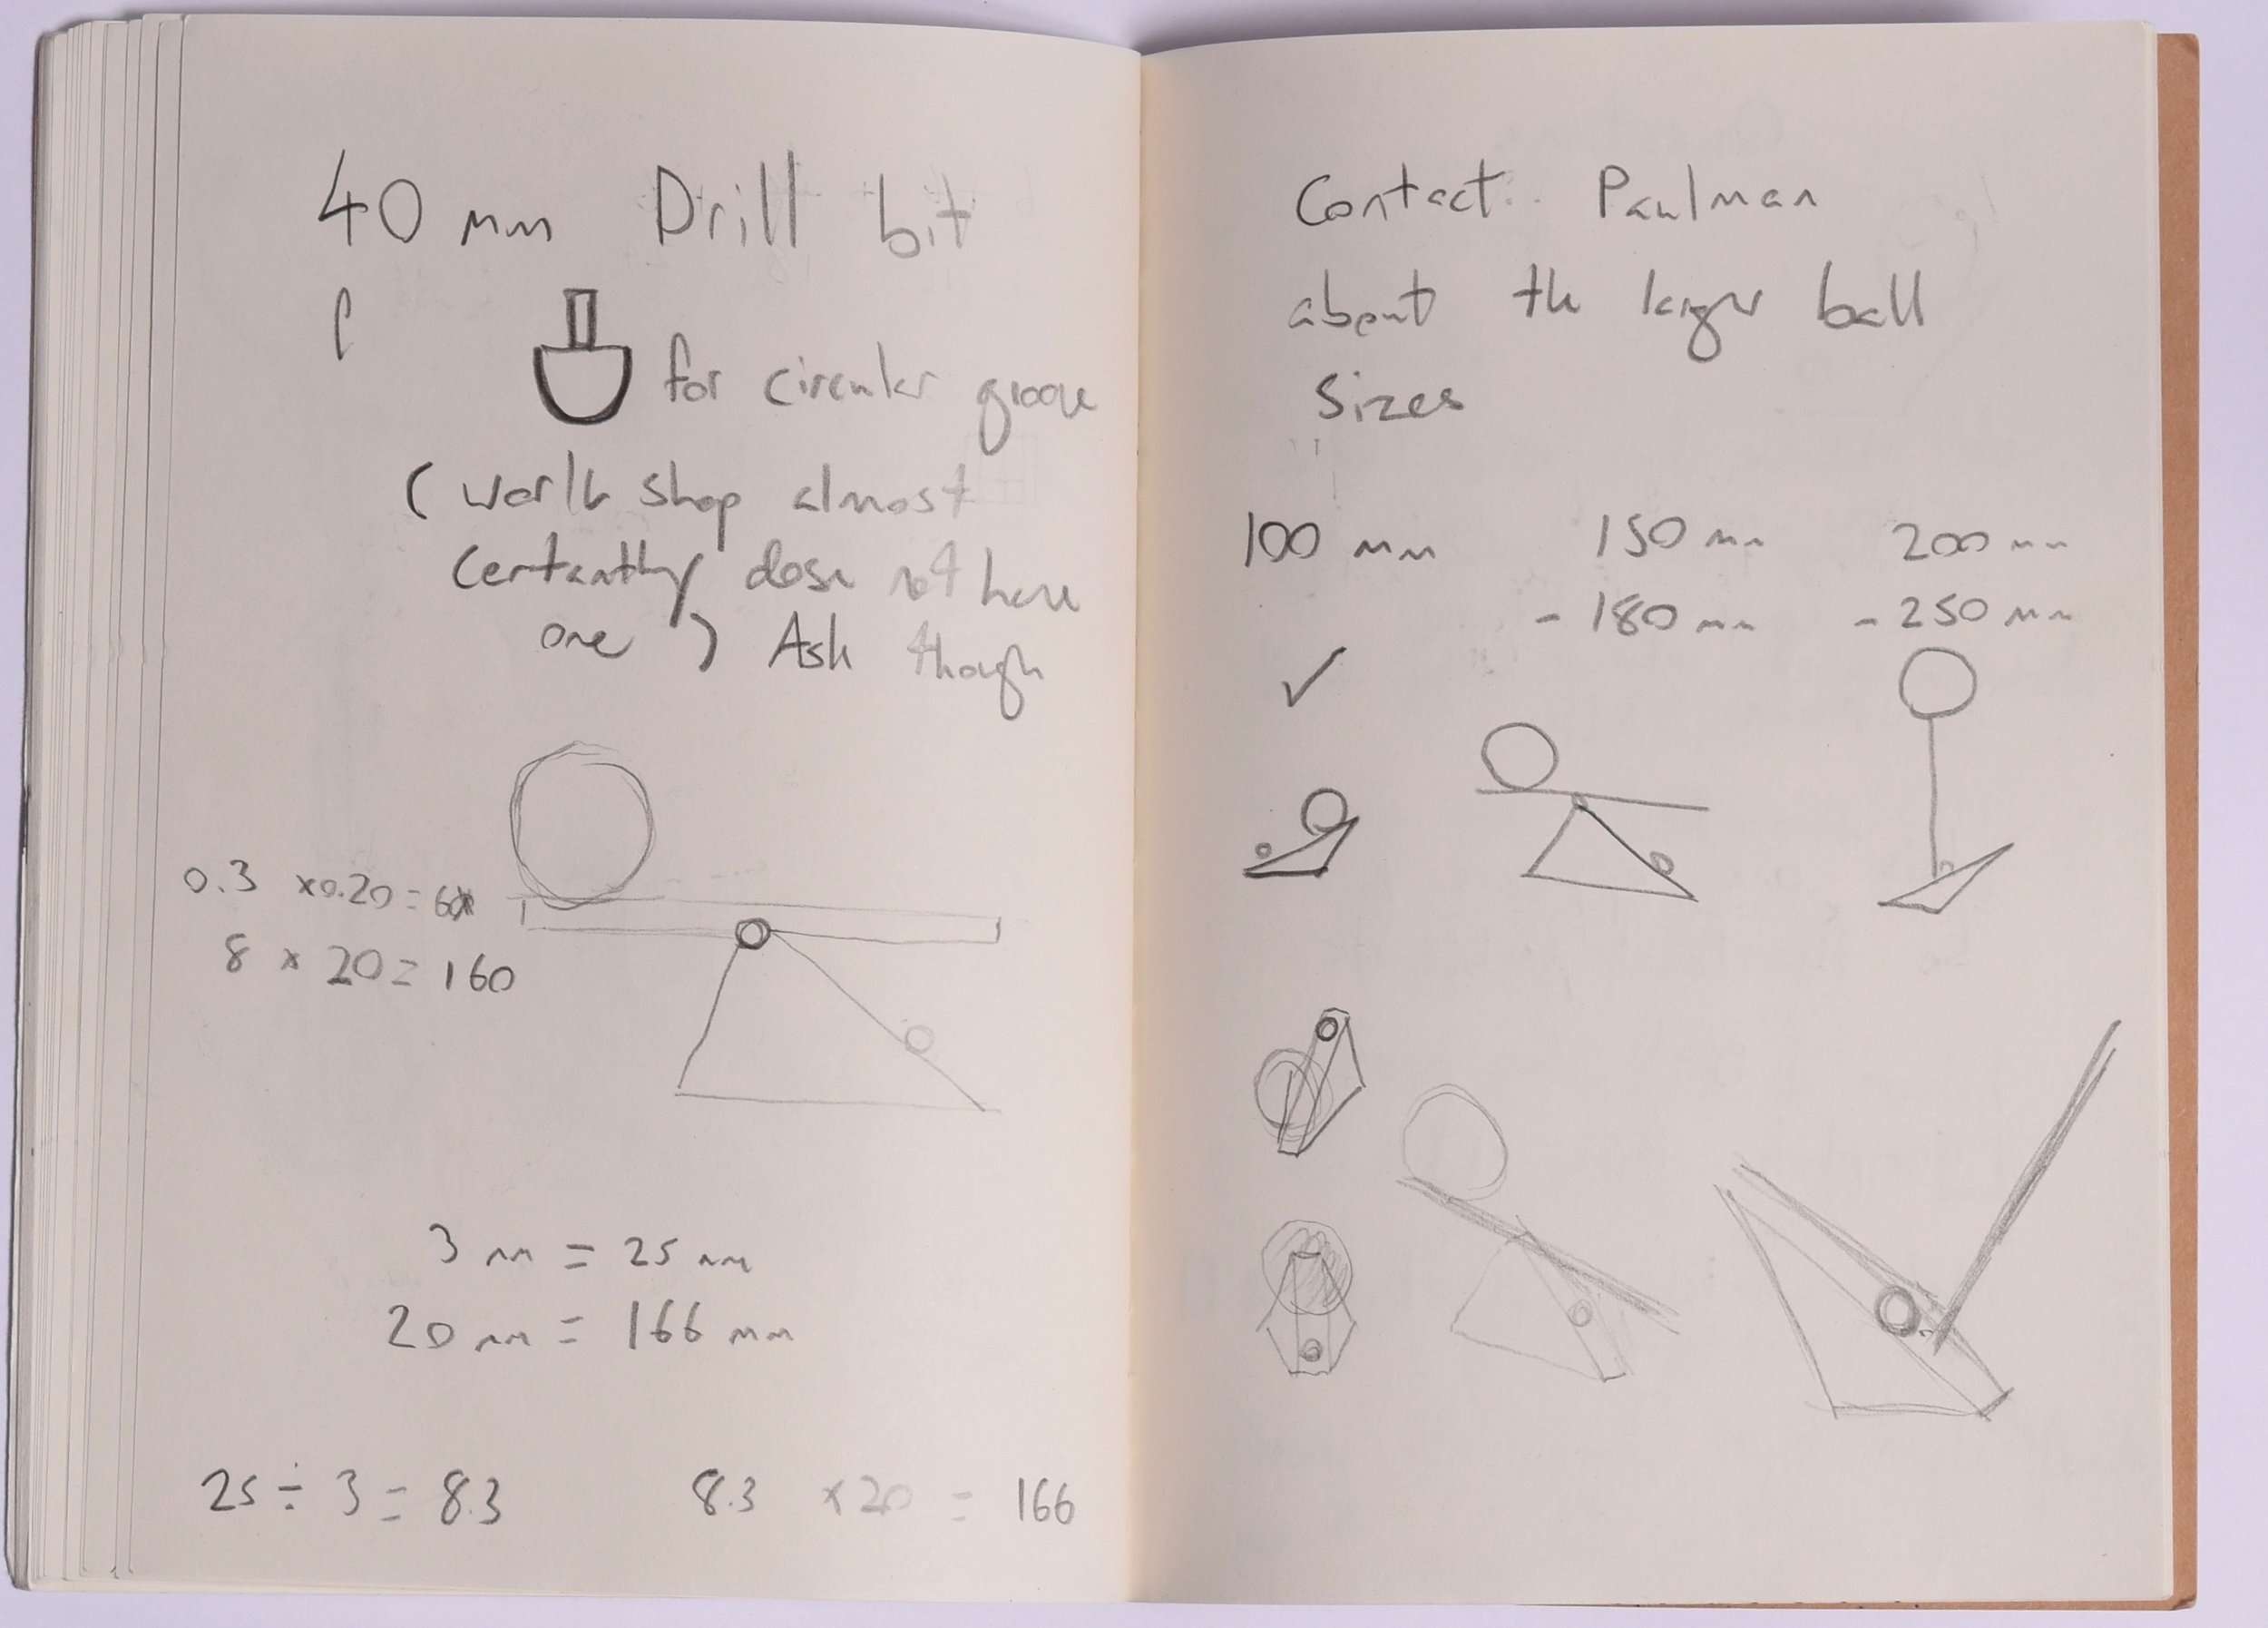 40 mm Drill bit
for circular groove
( work shop almost
certantly dose not have
one ) Ask though
0.3 x0.20 = 60
8 x 20 = 160
3 mm = 25 mm
20 mm = 166 mm
25 ÷ 3 = 8.3 8.3 x20 = 166
Contact Paulman
about the larger ball
Sizes
100 mm 150 mm 200 mm
- 180 mm - 250 mm